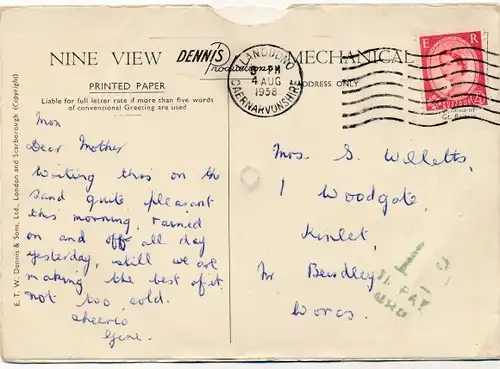 NINE VIEW DENNIS Productions MECHANICAL
PRINTED PAPER
Liable for full letter rate if more than five words
of conventional Greeting are used
ADDRESS ONLY
LLANDUDNO
8 - PM
4 AUG
1958
CAERNARVONSHIRE
E R
E. T. W. Dennis & Sons, Ltd., London and Scarborough (Copyright)
Mon
Dear Mother
Writing this on the
sand quite pleasant
this morning, rained
on and off all day
yesterday, still we are
making the best of it
not too cold.
cheerio
Gene.
Mrs. S. Willetts,
1 Woodgate,
Kinlet,
Nr Bewdley
Worcs.
Gt. Britain